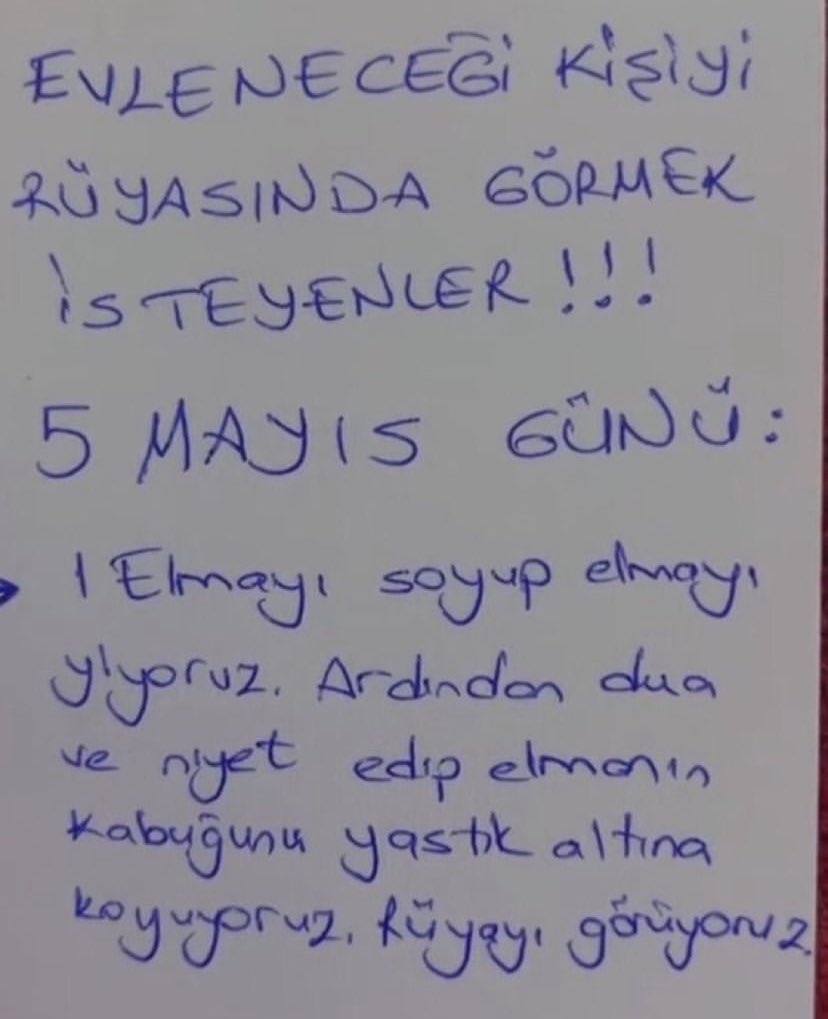 EVLENECEĞİ KİŞİYİ
RÜYASINDA GÖRMEK
İSTEYENLER!!!
5 MAYIS GÜNÜ:
1 Elmayı soyup elmayı
yiyoruz. Ardından dua
ve niyet edip elmanın
kabuğunu yastık altına
koyuyoruz. Rüyayı görüyoruz.